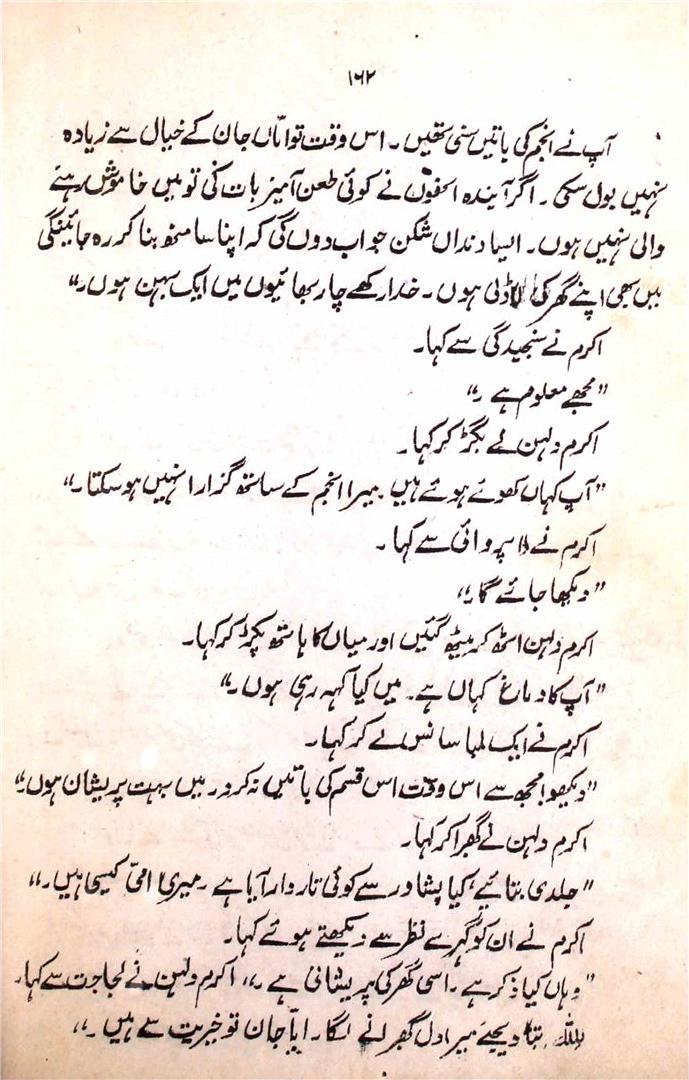 ۱۶۲
آپ نے انجم کی باتیں سنی تھیں۔ اس وقت تو اماّں جان کے خیال سے زیادہ
نہیں بول سکی۔ اگر آیندہ انھوں نے کوئی طعن آمیز بات کی تو میں خاموش رہنے
والی نہیں ہوں۔ ایسا دنداں شکن جواب دوں گی کہ اپنا سا منھ بنا کر رہ جائینگی
میں بھی اپنے گھر کی لاڈلی ہوں۔ خدا رکھے چار بھائیوں میں ایک بہن ہوں۔“
اکرم نے سنجیدگی سے کہا۔
”مجھے معلوم ہے۔“
اکرم دلہن نے بگڑ کر کہا۔
”آپ کہاں کھوئے ہوئے ہیں میرا انجم کے ساتھ گزارا نہیں ہو سکتا۔“
اکرم نے لاپروائی سے کہا۔
”دیکھا جائے گا۔“
اکرم دلہن اٹھ کر بیٹھ گئیں اور میاں کا ہاتھ پکڑ کر کہا۔
”آپ کا دماغ کہاں ہے۔ میں کیا کہہ رہی ہوں۔“
اکرم نے ایک لمبا سانس لے کر کہا۔
”دیکھو! مجھ سے اس وقت اس قسم کی باتیں نہ کرو۔ میں بہت پریشان ہوں۔“
اکرم دلہن نے گھبرا کر کہا۔
”جلدی بتائیے، کیا پشاور سے کوئی تار وار آیا ہے۔ میری امیّ کیسی ہیں۔“
اکرم نے ان کو گہرے نظر سے دیکھتے ہوئے کہا۔
”وہاں کیا ذکر ہے۔ اسی گھر کی پریشانی ہے۔“ اکرم دلہن نے لجاجت سے کہا۔
للہ بتا دیجیے میرا دل گھبرانے لگا۔ ابّا جان تو خیریت سے ہیں۔“